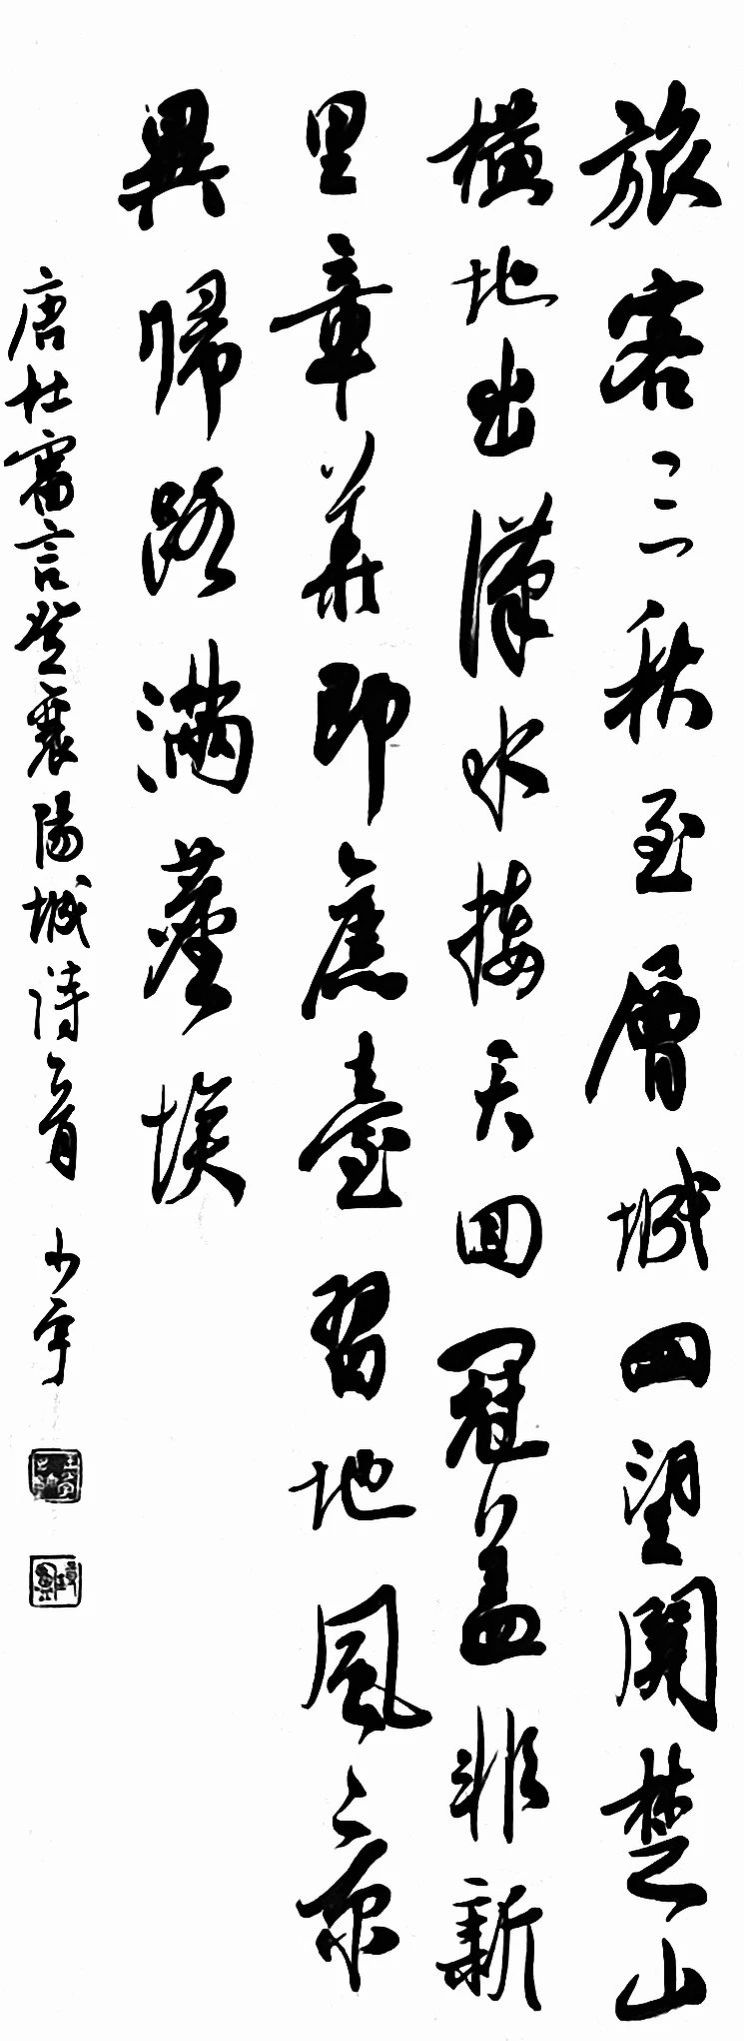 旅客三秋至層城四望開楚山
橫地出漢水接天回冠蓋非新
里章華即舊臺習地風景
異歸路滿塵埃
唐杜審言登襄陽城詩一首 少宇